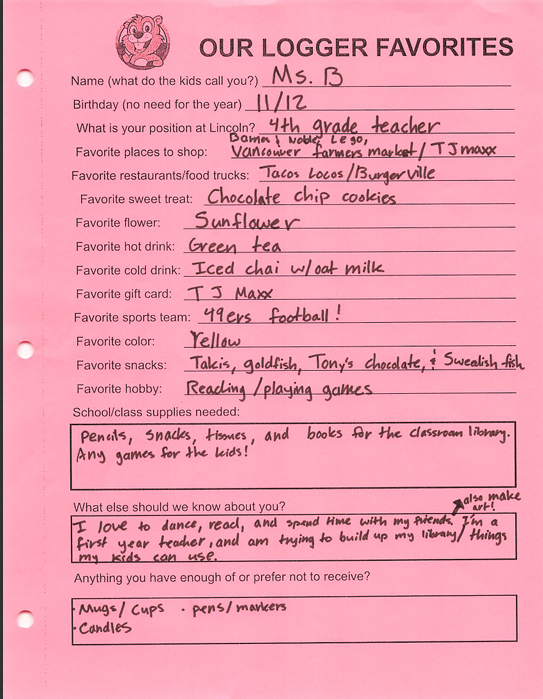 OUR LOGGER FAVORITES
Name (what do the kids call you?) Ms. B
Birthday (no need for the year) 11/12
What is your position at Lincoln? 4th grade teacher
Barnes & Noble, Lego,
Favorite places to shop: Vancouver farmers market/ TJ maxx
Favorite restaurants/food trucks: Tacos Locos/Burgerville
Favorite sweet treat: Chocolate chip cookies
Favorite flower: Sunflower
Favorite hot drink: Green tea
Favorite cold drink: Iced chai w/oat milk
Favorite gift card: TJ Maxx
Favorite sports team: 49ers football!
Favorite color: Yellow
Favorite snacks: Takis, goldfish, Tony's chocolate, & Swedish fish
Favorite hobby: Reading/playing games
School/class supplies needed:
Pencils, snacks, tissues, and books for the classroom library.
Any games for the kids!
What else should we know about you?
also make
art!
I love to dance, read, and spend time with my friends. I'm a
first year teacher, and am trying to build up my library/things
my kids can use.
Anything you have enough of or prefer not to receive?
· Mugs/ Cups · pens/markers
· Candles